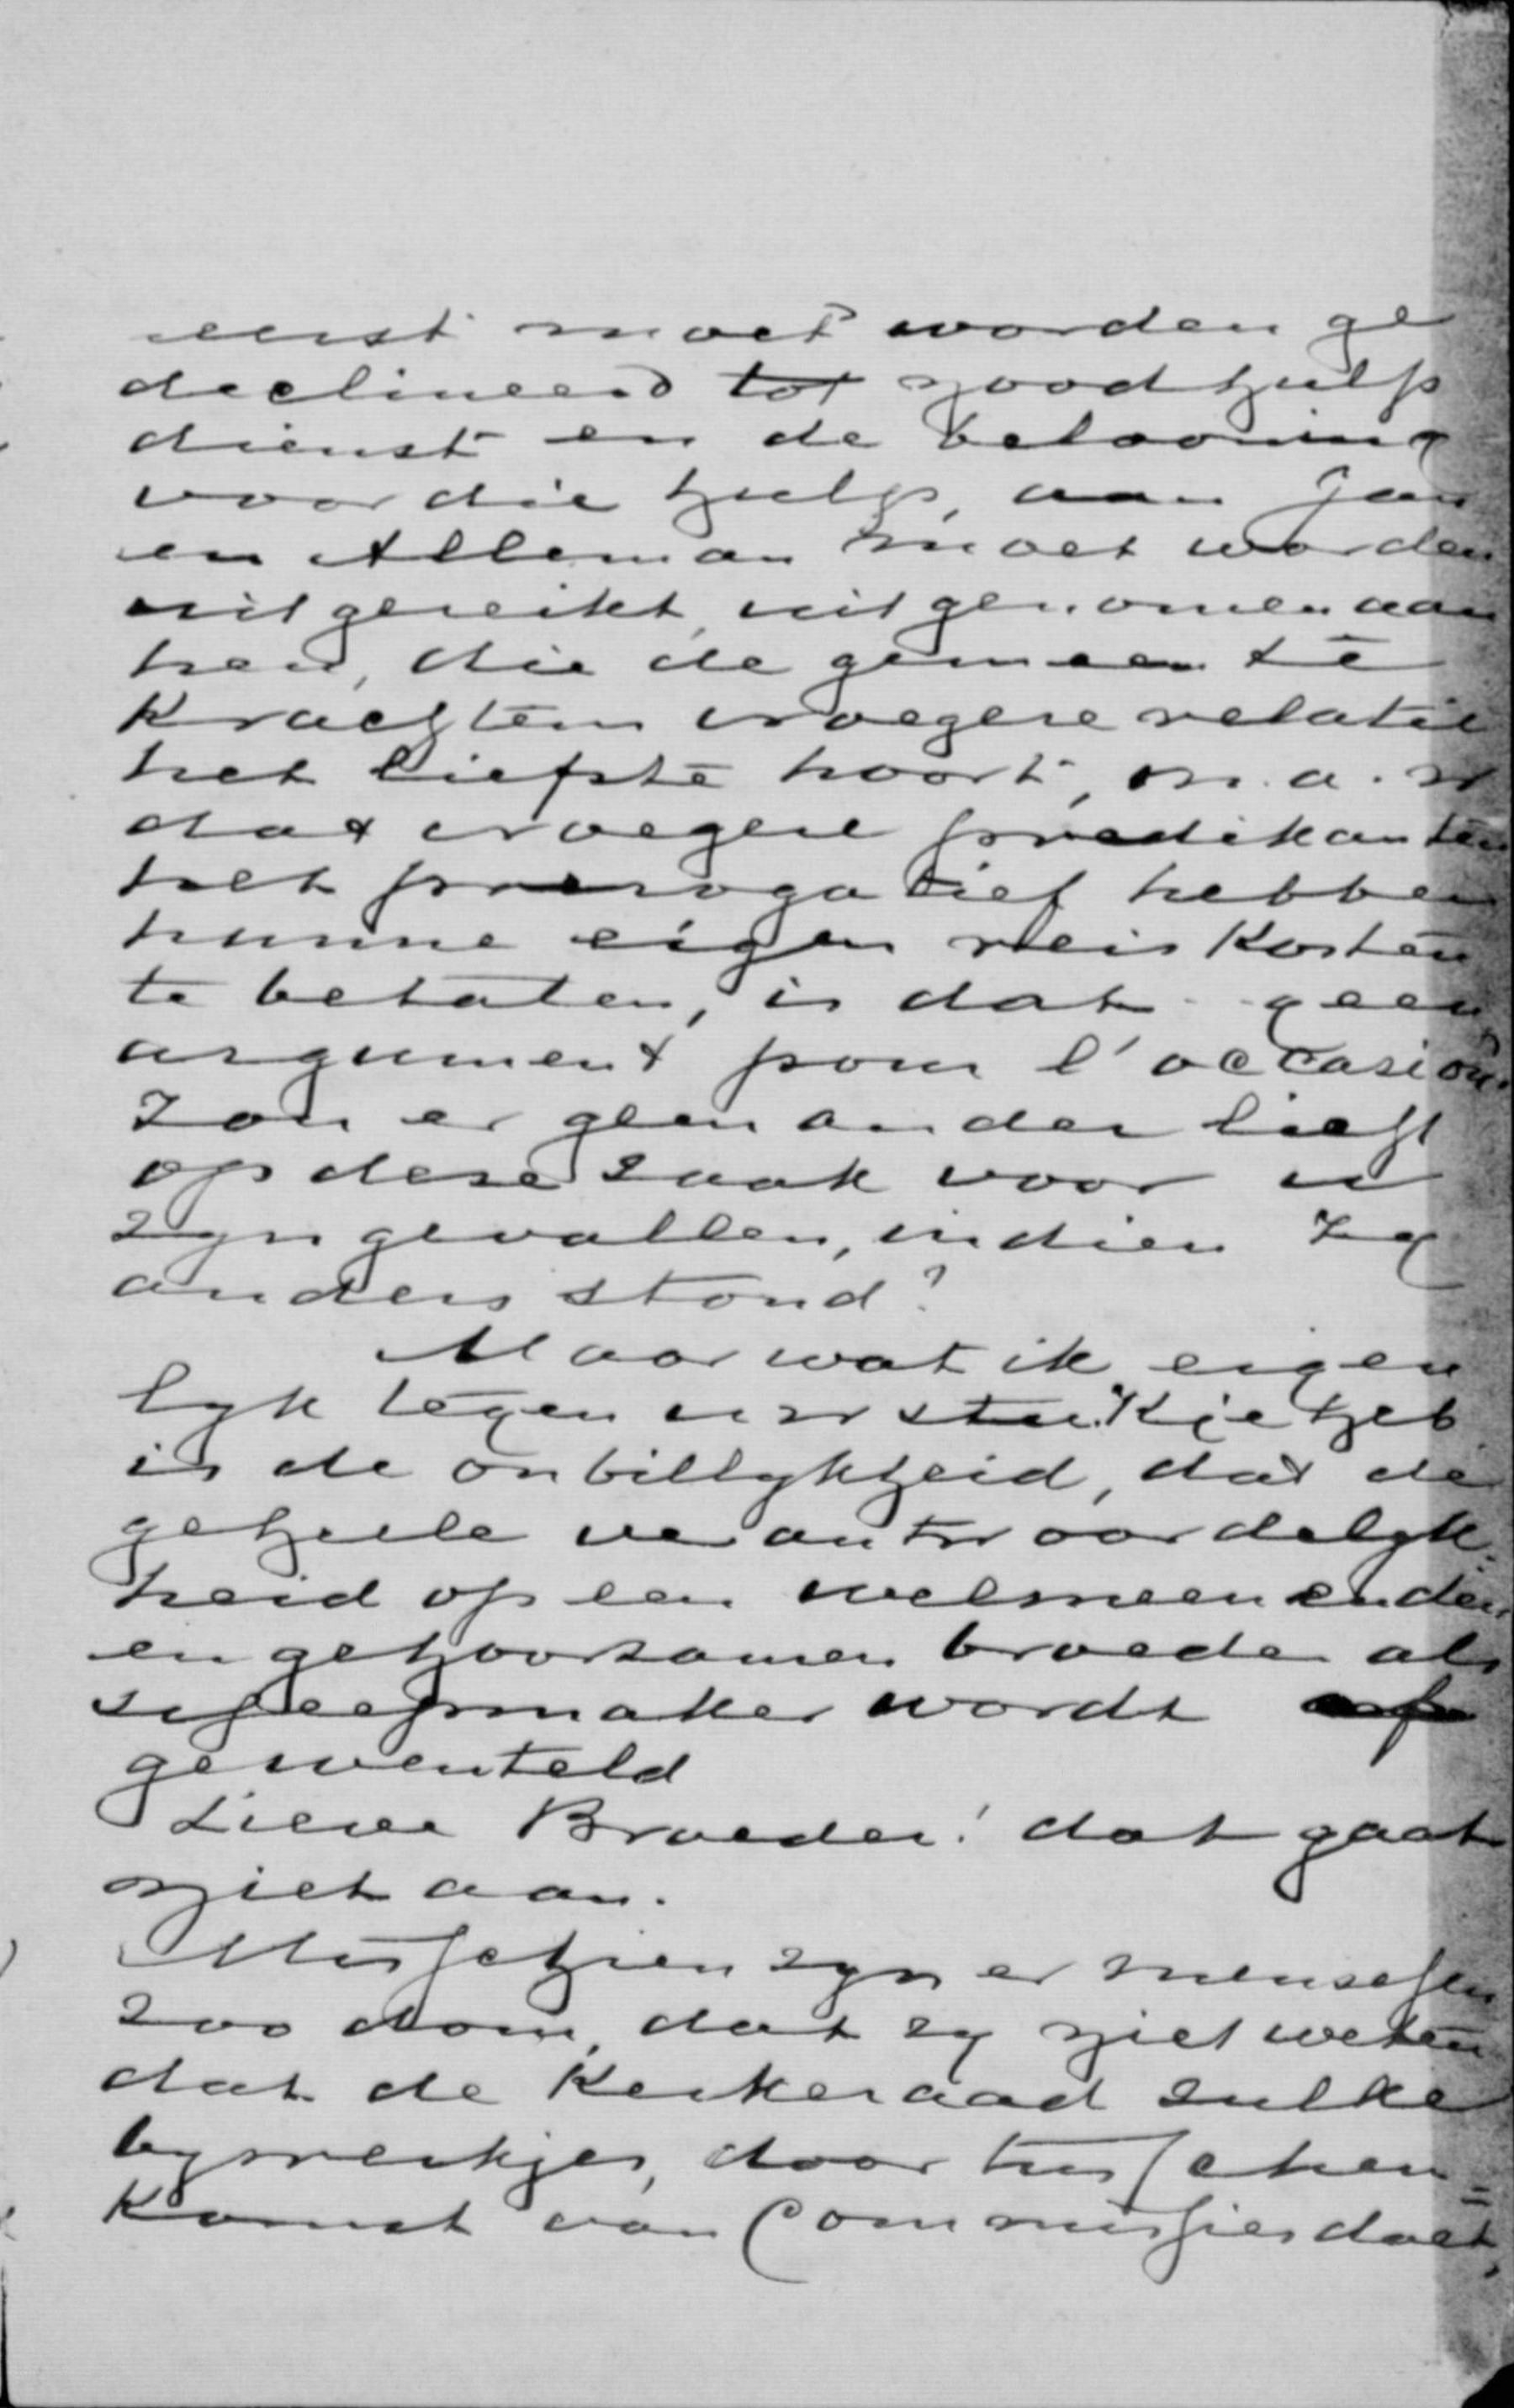 eerst moet worden ge
declineerd tot noodhulp
dienst en de belooning
voor die hulp, aan Jan
en Alleman moet worden
uitgereikt, uitgenomen aan
hen, die de gemeente
krachtens vroegere relatie
het liefste hoort, m.a.w
dat vroegere predikanten
het prerogatief hebben
hunne eigen reiskosten
te betalen, is dat geen
argument pour l'occasion.
Zou er geen ander licht
op deze zaak voor u
zyn gevallen, indien zy
anders stond?
Maar wat ik eigen
lyk tegen uw stukje heb
is de onbillykheid, dat de
geheele verantwoordelyk
heid op een welmeenenden
en gehoorzamen broeder als
scheepmaker wordt af
gewenteld
Lieve Broeder! dat gaat
niet aan.
Misschien zyn er menschen
zoo dom, dat zy niet weten
dat de Kerkeraad zulke
bywerkjes, door tusschen=
komst van Commissies doet,